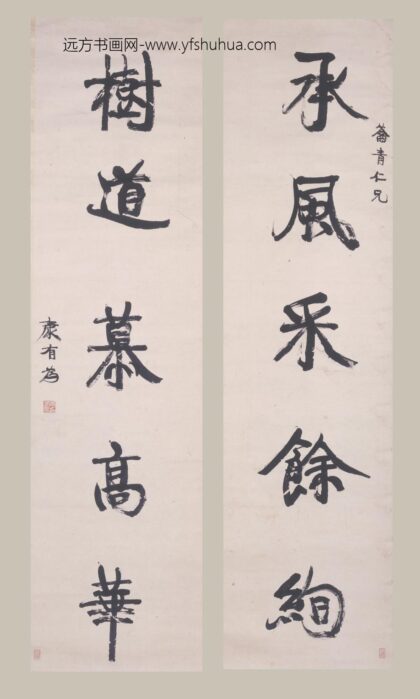 远方书画网-www.yfshuhua.com
承風采餘絢
蕃青仁兄
樹道慕高華
康有為